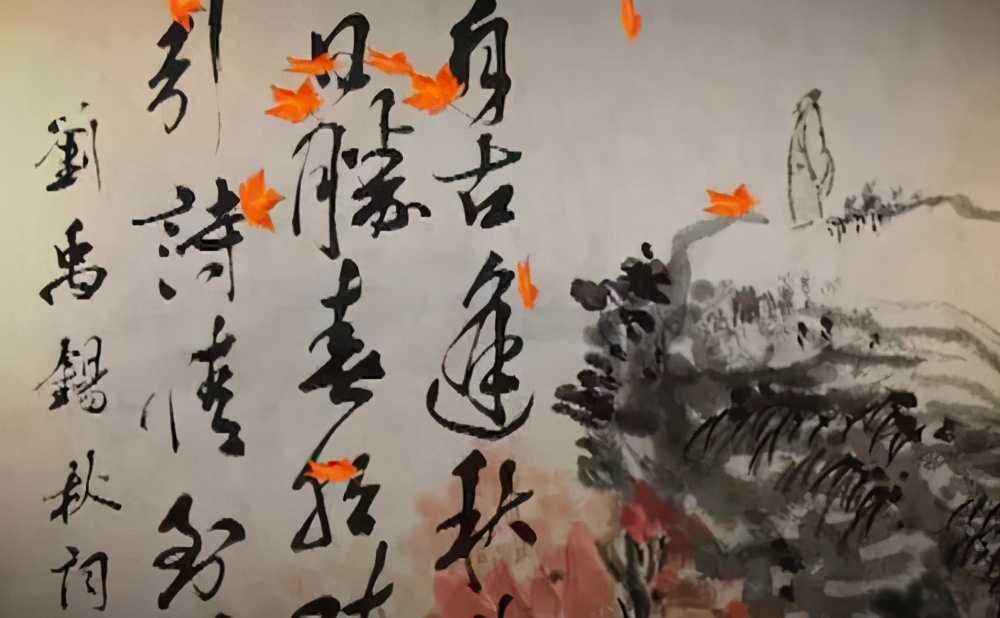 自古逢秋
日勝春朝
引詩情到
劉禹錫秋詞